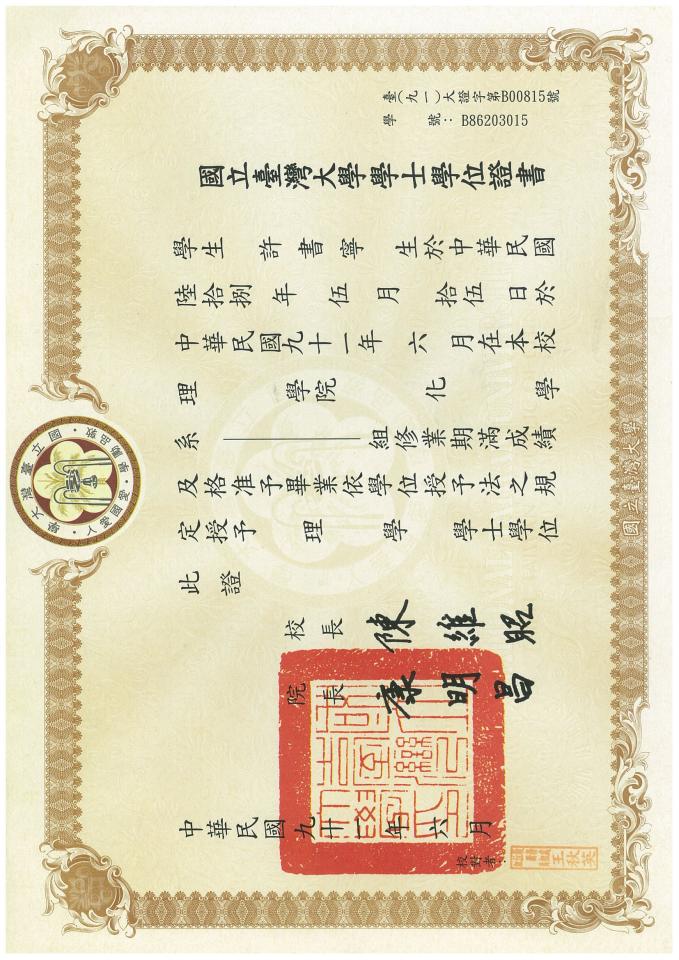 臺(九一)大證字第B00815號
學 號：B86203015
國立臺灣大學學士學位證書
學生 許書寧 生於中華民國
陸拾捌 年 伍 月 拾伍 日於
中華民國九十一年 六 月在本校
理 學院 化 學
系 ———— 組修業期滿成績
及格准予畢業依學位授予法之規
定授予 理 學 學士學位
此證
校長 陳維昭
院長 康明昌
中華民國九十一年六月
校對者：
王秋英
國立臺灣大學